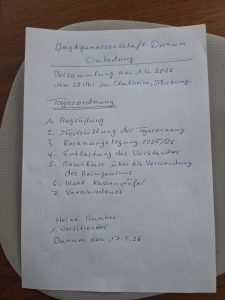 Jagdgenossenschaft Dunum
Einladung
Versammlung am 1.4.2026
um 20 Uhr im Clubheim,
Tagesordnung
1. Begrüßung
2. Feststellung der Tagesordnung
3. Rechnungslegung 2025/26
4. Entlastung des Vorstandes
5. Beschluss über die Verwendung
des Reingewinns
6. Wahl Kassenprüfer
7. Verschiedenes
Heino
1. Vorsitzender
Dunum den 17.3.26